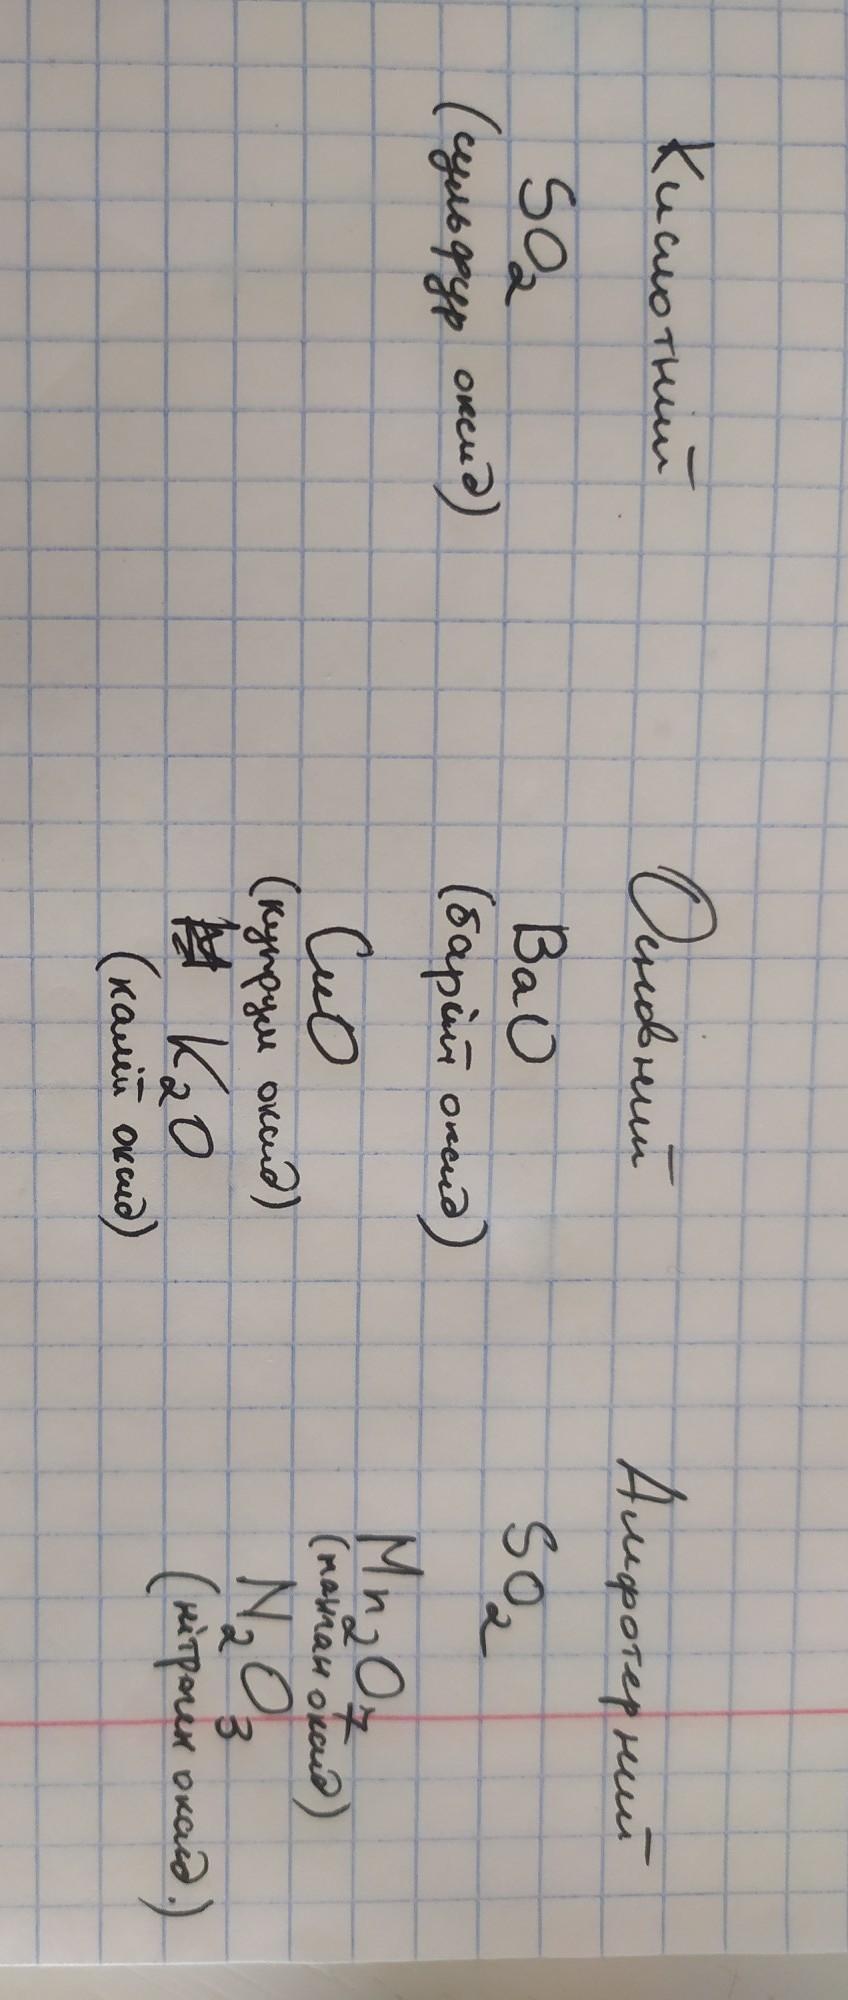 Кислотний
SO2
(сульфур оксид)
Основний
BaO
(барій оксид)
CuO
(купрум оксид)
K2O
(калій оксид)
Амфотерний
SO2
Mn2O7
(манган оксид)
N2O3
(нітроген оксид.)